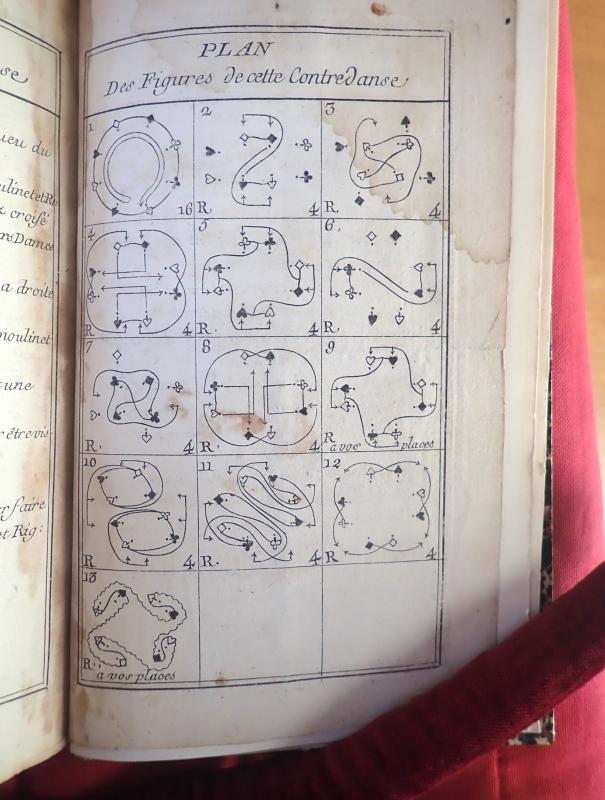 PLAN
Des Figures de cette Contredanse
1 2 3
16 R. 4 R. 4
4 5 6
R 4 R. 4 R. 4
7 8 9
R. 4 R. 4 R a vos places
10 11 12
R 4 R. 4 R 4
13
R. a vos places
se
ueu du
ulinet et R
z croisé
rs Dames
a droite
moulinet
une
r être vis-
r faire
et Rig: